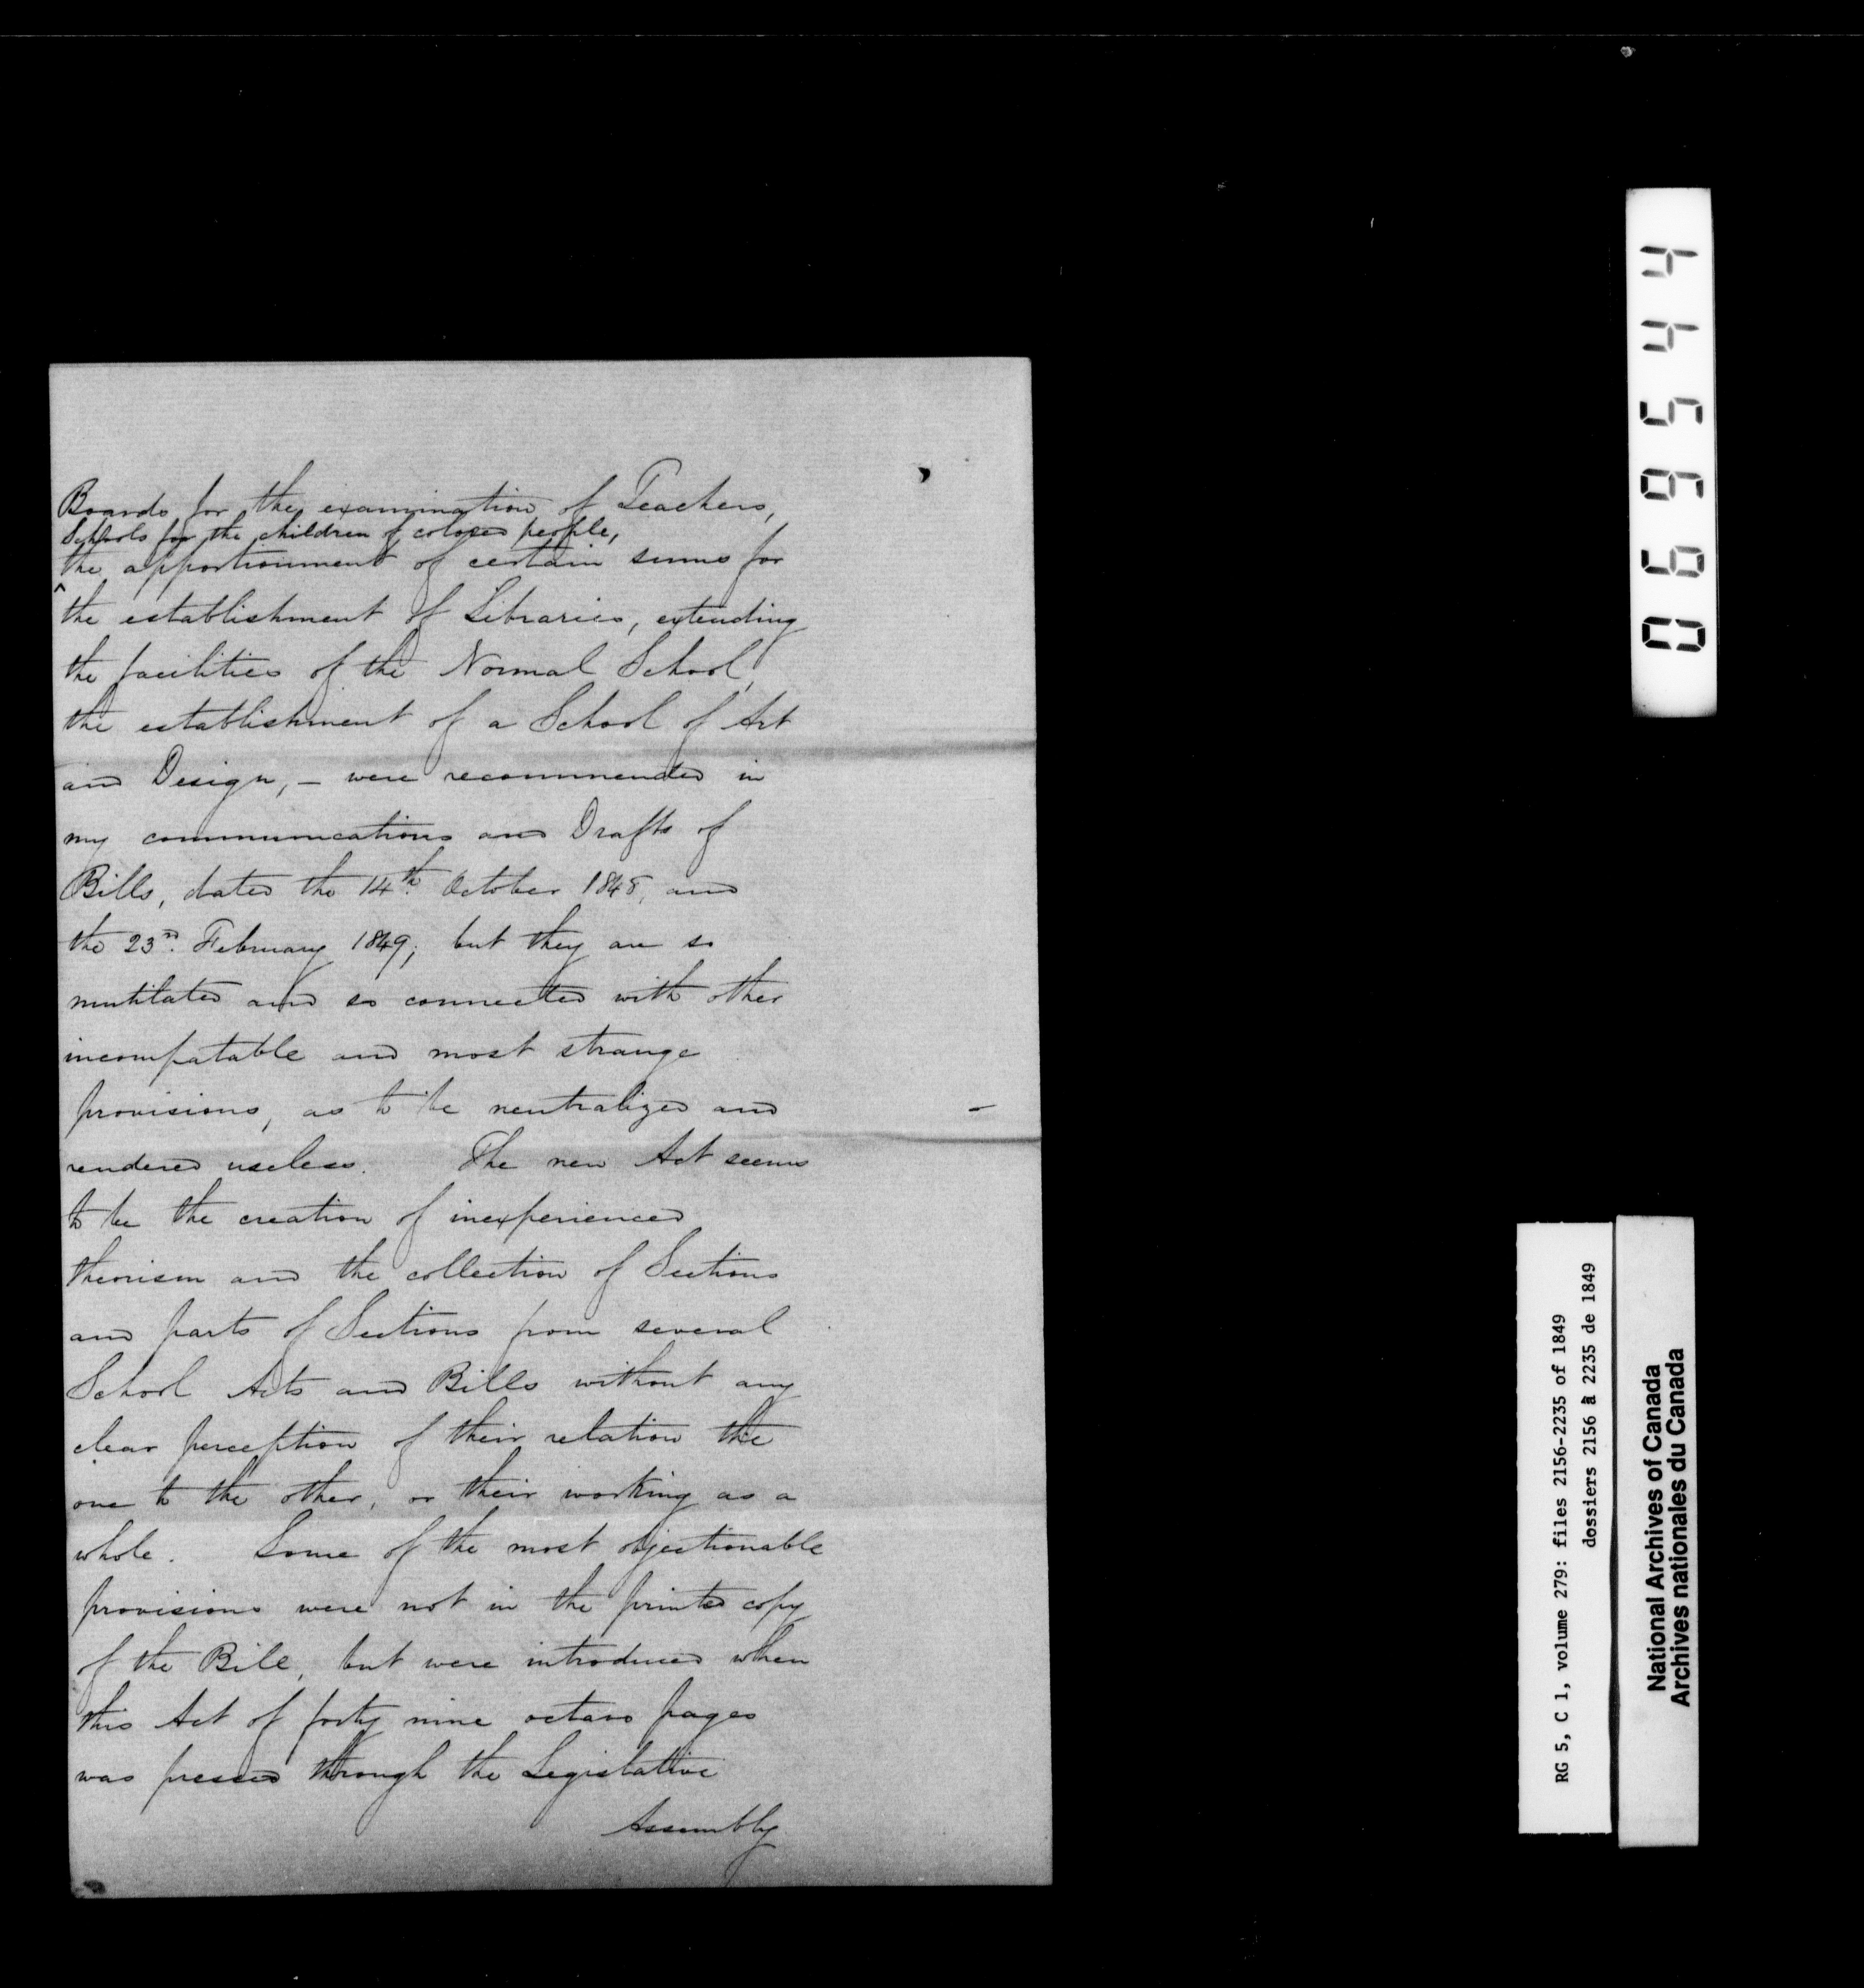 Boards for the examination of Teachers,
Schools for the children of colored people,
^
the apportionment of certain sums for
the establishment of Libraries, extending
the facilities of the Normal School,
the establishment of a School of Art
and Design, – were recommended in
my communications and Drafts of
Bills, dated the 14th. October 1848, and
the 23rd. February 1849; but they are so
mutilated and so connected with other
incompatable and most strange
provisions, as to be neutralized and
rendered useless. The new Act seems
to be the creation of inexperienced
theorism and the collection of Sections
and parts of Sections from several
School Acts and Bills without any
clear perception of their relation the
one to the other, or their working as a
whole. Some of the most objectionable
provisions were not in the printed copy
of the Bill, but were introduced when
this Act of forty nine octavo pages
was pressed through the Legislative
Assembly
069544
RG 5, C 1, volume 279: files 2156-2235 of 1849
dossiers 2156 à 2235 de 1849
National Archives of Canada
Archives nationales du Canada